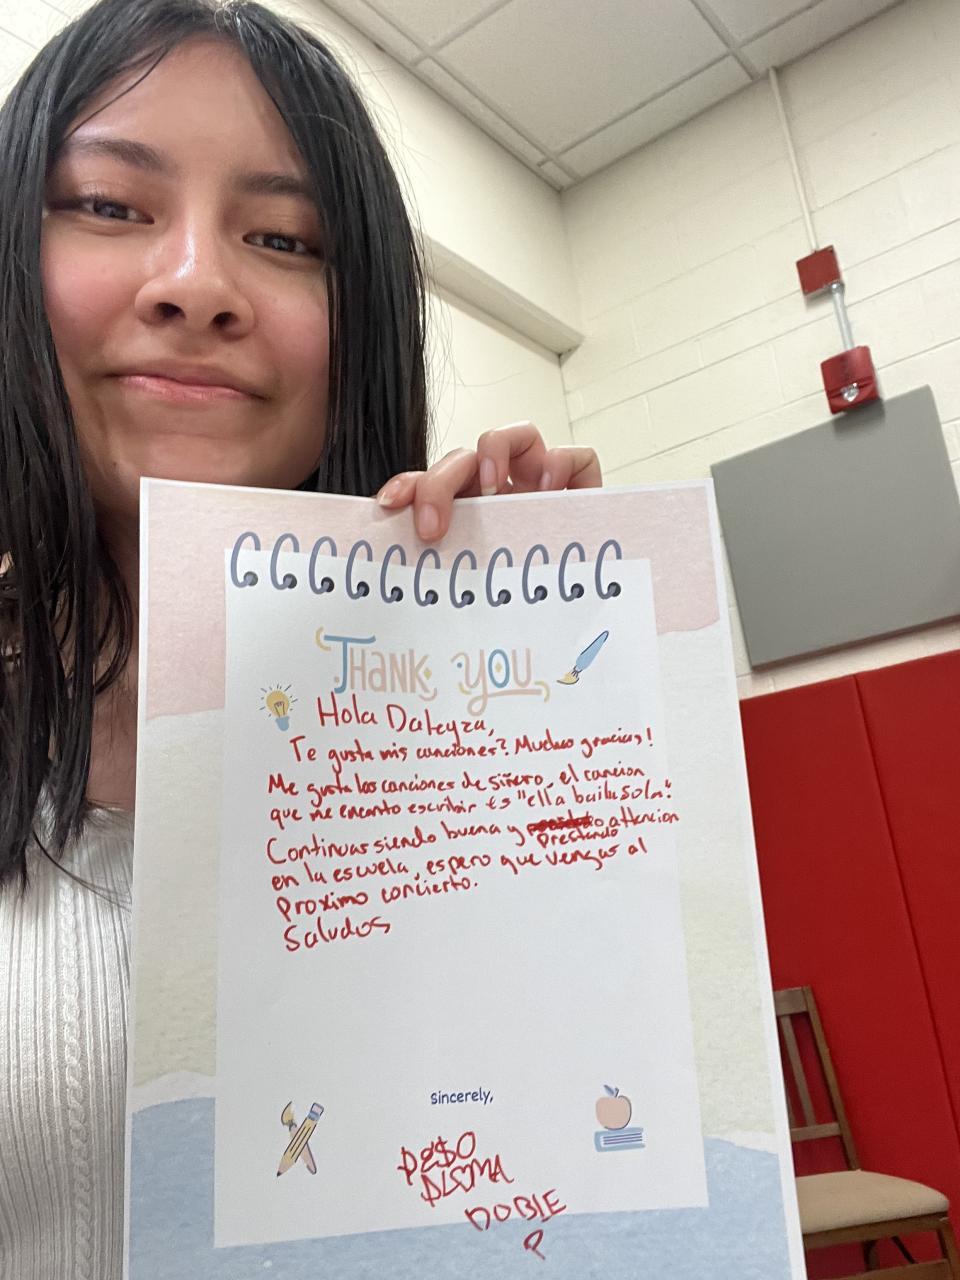 THANK YOU
Hola Daleyza,
Te gusta mis canciones? Muchas gracias!
Me gusta las canciones de siñero, el cancion
que me encanto escribir es "ella baila sola."
Continuas siendo buena y prestando attencion
en la escuela, espero que vengas al
proximo concierto.
Saludos
sincerely,
PE$O
PLUMA
DOBLE
P